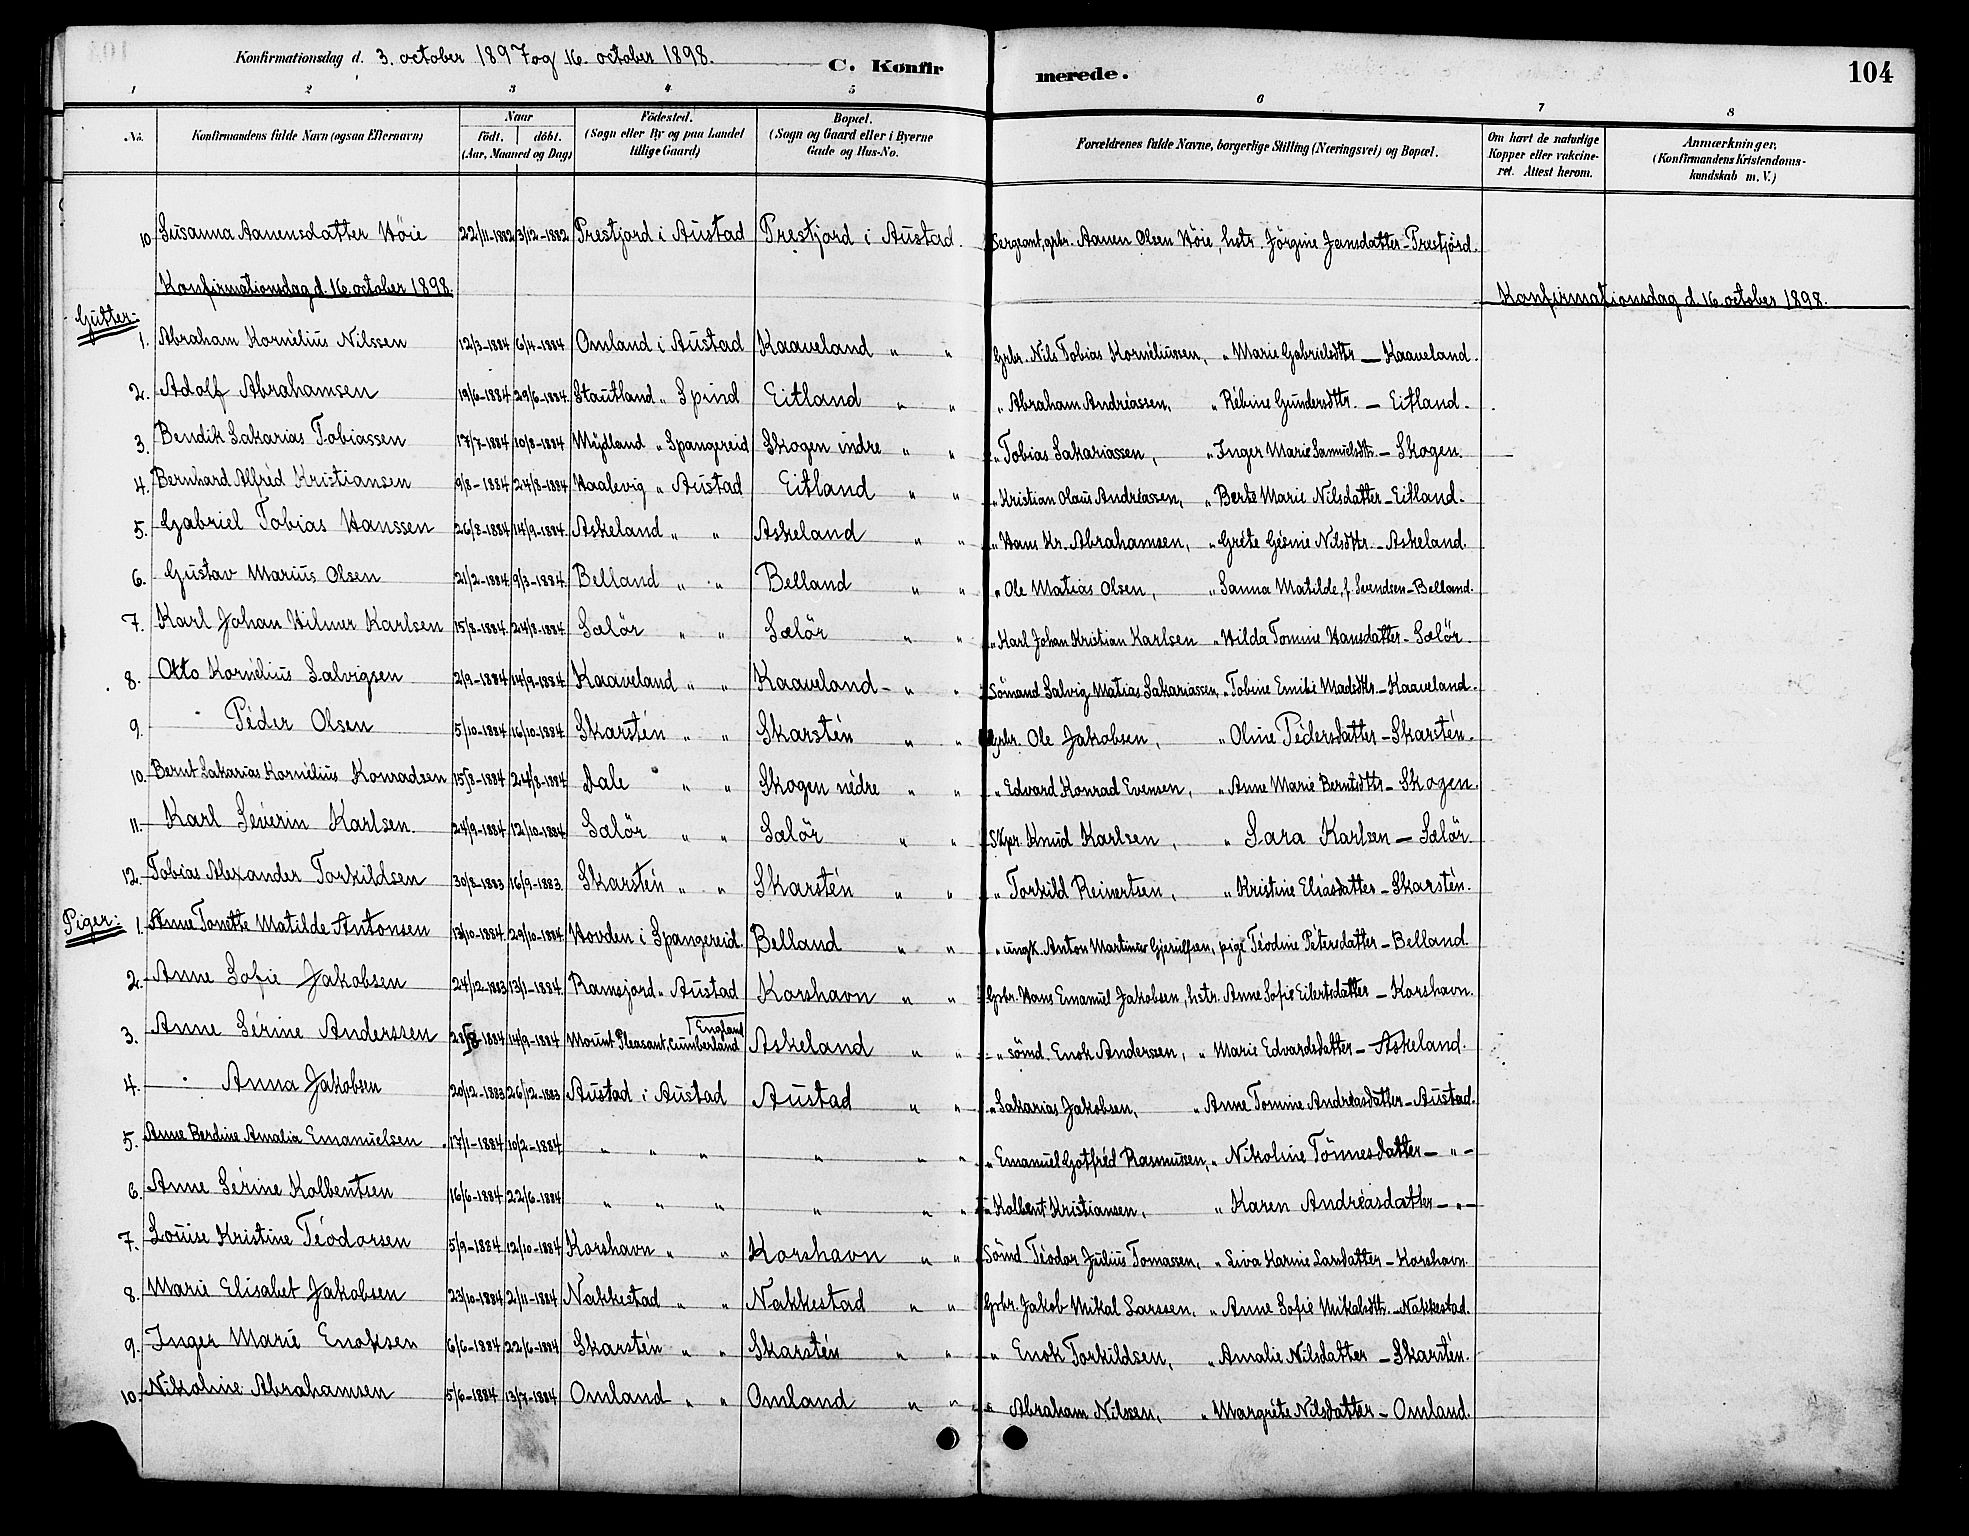 Konfirmationsdag d. 3. october 1897 og 16. october 1898. C. Konfirmerede. 104
1 2 3 4 5 6 7 8
No. Konfirmandens fulde Navn (ogsaa Efternavn) Naar født. døbt. (Aar, Maaned og Dag) Fødested. (Sogn eller By og paa Landet tillige Gaard) Bopæl. (Sogn og Gaard eller i Byerne Gade og Hus-No. Forældrenes fulde Navne, borgerlige Stilling (Næringsvei) og Bopæl. Om havt de naturlige Kopper eller vakcineret. Attest herom. Anmærkninger, (Konfirmandens Kristendomskundskab m. V.)
10 Susanna Aanensdatter Höie 22/11-1882 3/12-1882 Prestjord i Austad Prestjord i Austad. Sergeant, grbr. Aanen Olsen Höie, hstr. Jörgine Jensdatter - Prestjord.
Konfirmationsdag d. 16. october 1898. Konfirmationsdag d. 16. october 1898.
Gutter:
1. Abraham Kornélius Nilssen 12/3-1884 6/4-1884 Omland i Austad Kaaveland " " Grbr. Nils Tobias Kornéliussen, " Marie Gabrielsdttr - Kaaveland.
2. Adolf Abrahamsen 19/6-1884 29/6-1884. Stautland " Spind Eitland " " " Abraham Andréassen, " Rébine Gundersdttr. - Eitland.
3. Bendik Sakarias Tobiassen 17/7-1884 10/8-1884 Mydland " Spangereid Skogen indre " " " Tobias Sakariassen, " Inger Marie Samuelsdtr. - Skogen.
4. Bernhard Alfréd Kristiansen 9/8-1884 24/8-1884 Haalevig " Austad Eitland " " " Kristian Olaus Andréassen, " Berte Marie Nilsdatter - Eitland.
5. Gabriel Tobias Hanssen 26/8-1884 14/9-1884. Askeland " " Askeland " " " Hans Kr. Abrahamsen, " Gréte Gésine Nilsdttr. - Askeland.
6. Gustav Marius Olsen 21/2-1884 9/3-1884. Belland " " Belland " " " Ole Matias Olsen, " Sanna Matilde, f. Svendsen - Belland.
7. Karl Johan Hilmer Karlsen 15/8-1884. 24/8-1884. Sælör " " Sælör " " " Karl Johan Kristian Karlsen " Hilda Tomine Hansdatter - Sælör.
8. Otto Kornélius Salvigsen 2/9-1884 14/9-1884. Kaaveland " " Kaaveland - " " Sömand Salvig Matias Sakariassen, " Tobine Emilie Madsdtr. - Kaaveland.
9. Péder Olsen 5/10-1884 16/10-1884. Skarstén " " Skarstén " " Grbr. Ole Jakobsen, " Oline Pédersdatter - Skarstén.
10. Bernt Sakarias Kornélius Konradsen 15/8-1884 24/8-1884 Aale " " Skogen nédre " " " Edvard Konrad Evensen, " Anne Marie Berntsdttr - Skogen.
11. Karl Séverin Karlsen. 24/9-1884. 12/10-1884 Sælör " " Sælör " " Skpr. Knud Karlsen, " Sara Karlsen - Sælör.
12. Tobias Alexander Torkildsen 30/8-1883 16/9-1883. Skarstén " " Skarstén " " " Torkild Reinertsen, " Kristine Eliasdatter - Skarstén.
Piger:
1. Anne Tonette Matilde Antonsen 13/10-1884. 29/10-1884. Hovden i Spangereid. Belland " " " ungk. Anton Martinius Gjerulfsen, pige Téodine Pétersdatter - Belland.
2. Anne Sofie Jakobsen 24/12-1883 13/1-1884. Ramsjord " Austad Korshavn " " Grbr. Hans Emanuel Jakobsen, hstr. Anne Sofie Eilertsdatter - Korshavn.
3. Anne Sérine Anderssen 28/8-1884 14/9-1884 Mount Pleasant, Cumberland England Askeland " " " sömd. Enok Anderssen, " Marie Edvardsdatter - Askeland.
4. Anna Jakobsen 20/12-1883 26/12-1883 Austad i Austad Austad " " " Sakarias Jakobsen, " Anne Tomine Andreasdatter - Austad.
5. Anne Berdine Amalia Emanuelsen 17/1-1884 10/2-1884 " " " " " " " Emanuel Gotfréd Rasmussen, " Nikoline Tönnesdatter - " -
6. Anne Sérine Kolbentsen 16/6-1884 22/6-1884 " " " " " " " Kolbent Kristiansen, " Karen Andréasdatter - " -
7. Louise Kristine Téodorsen 5/9-1884 12/10-1884 Korshavn " " Korshavn " " Sömd Téodor Julius Tomassen, " Siva Karine Larsdatter - Korshavn.
8. Marie Elisabet Jakobsen 23/10-1884 2/11-1884 Nakkestad " " Nakkestad " " Grbr. Jakob Mikal Larssen, " Anne Sofie Mikalsdttr. - Nakkestad.
9. Inger Marie Enoksen 6/6-1884 22/6-1884 Skarstén " " Skarstén " " " Enok Torkildsen, " Amalie Nilsdatter - Skarstén.
10. Nikoline Abrahamsen 5/6-1884 13/7-1884 Omland " " Omland " " " Abraham Nilssen, " Margréte Nilsdatter - Omland.